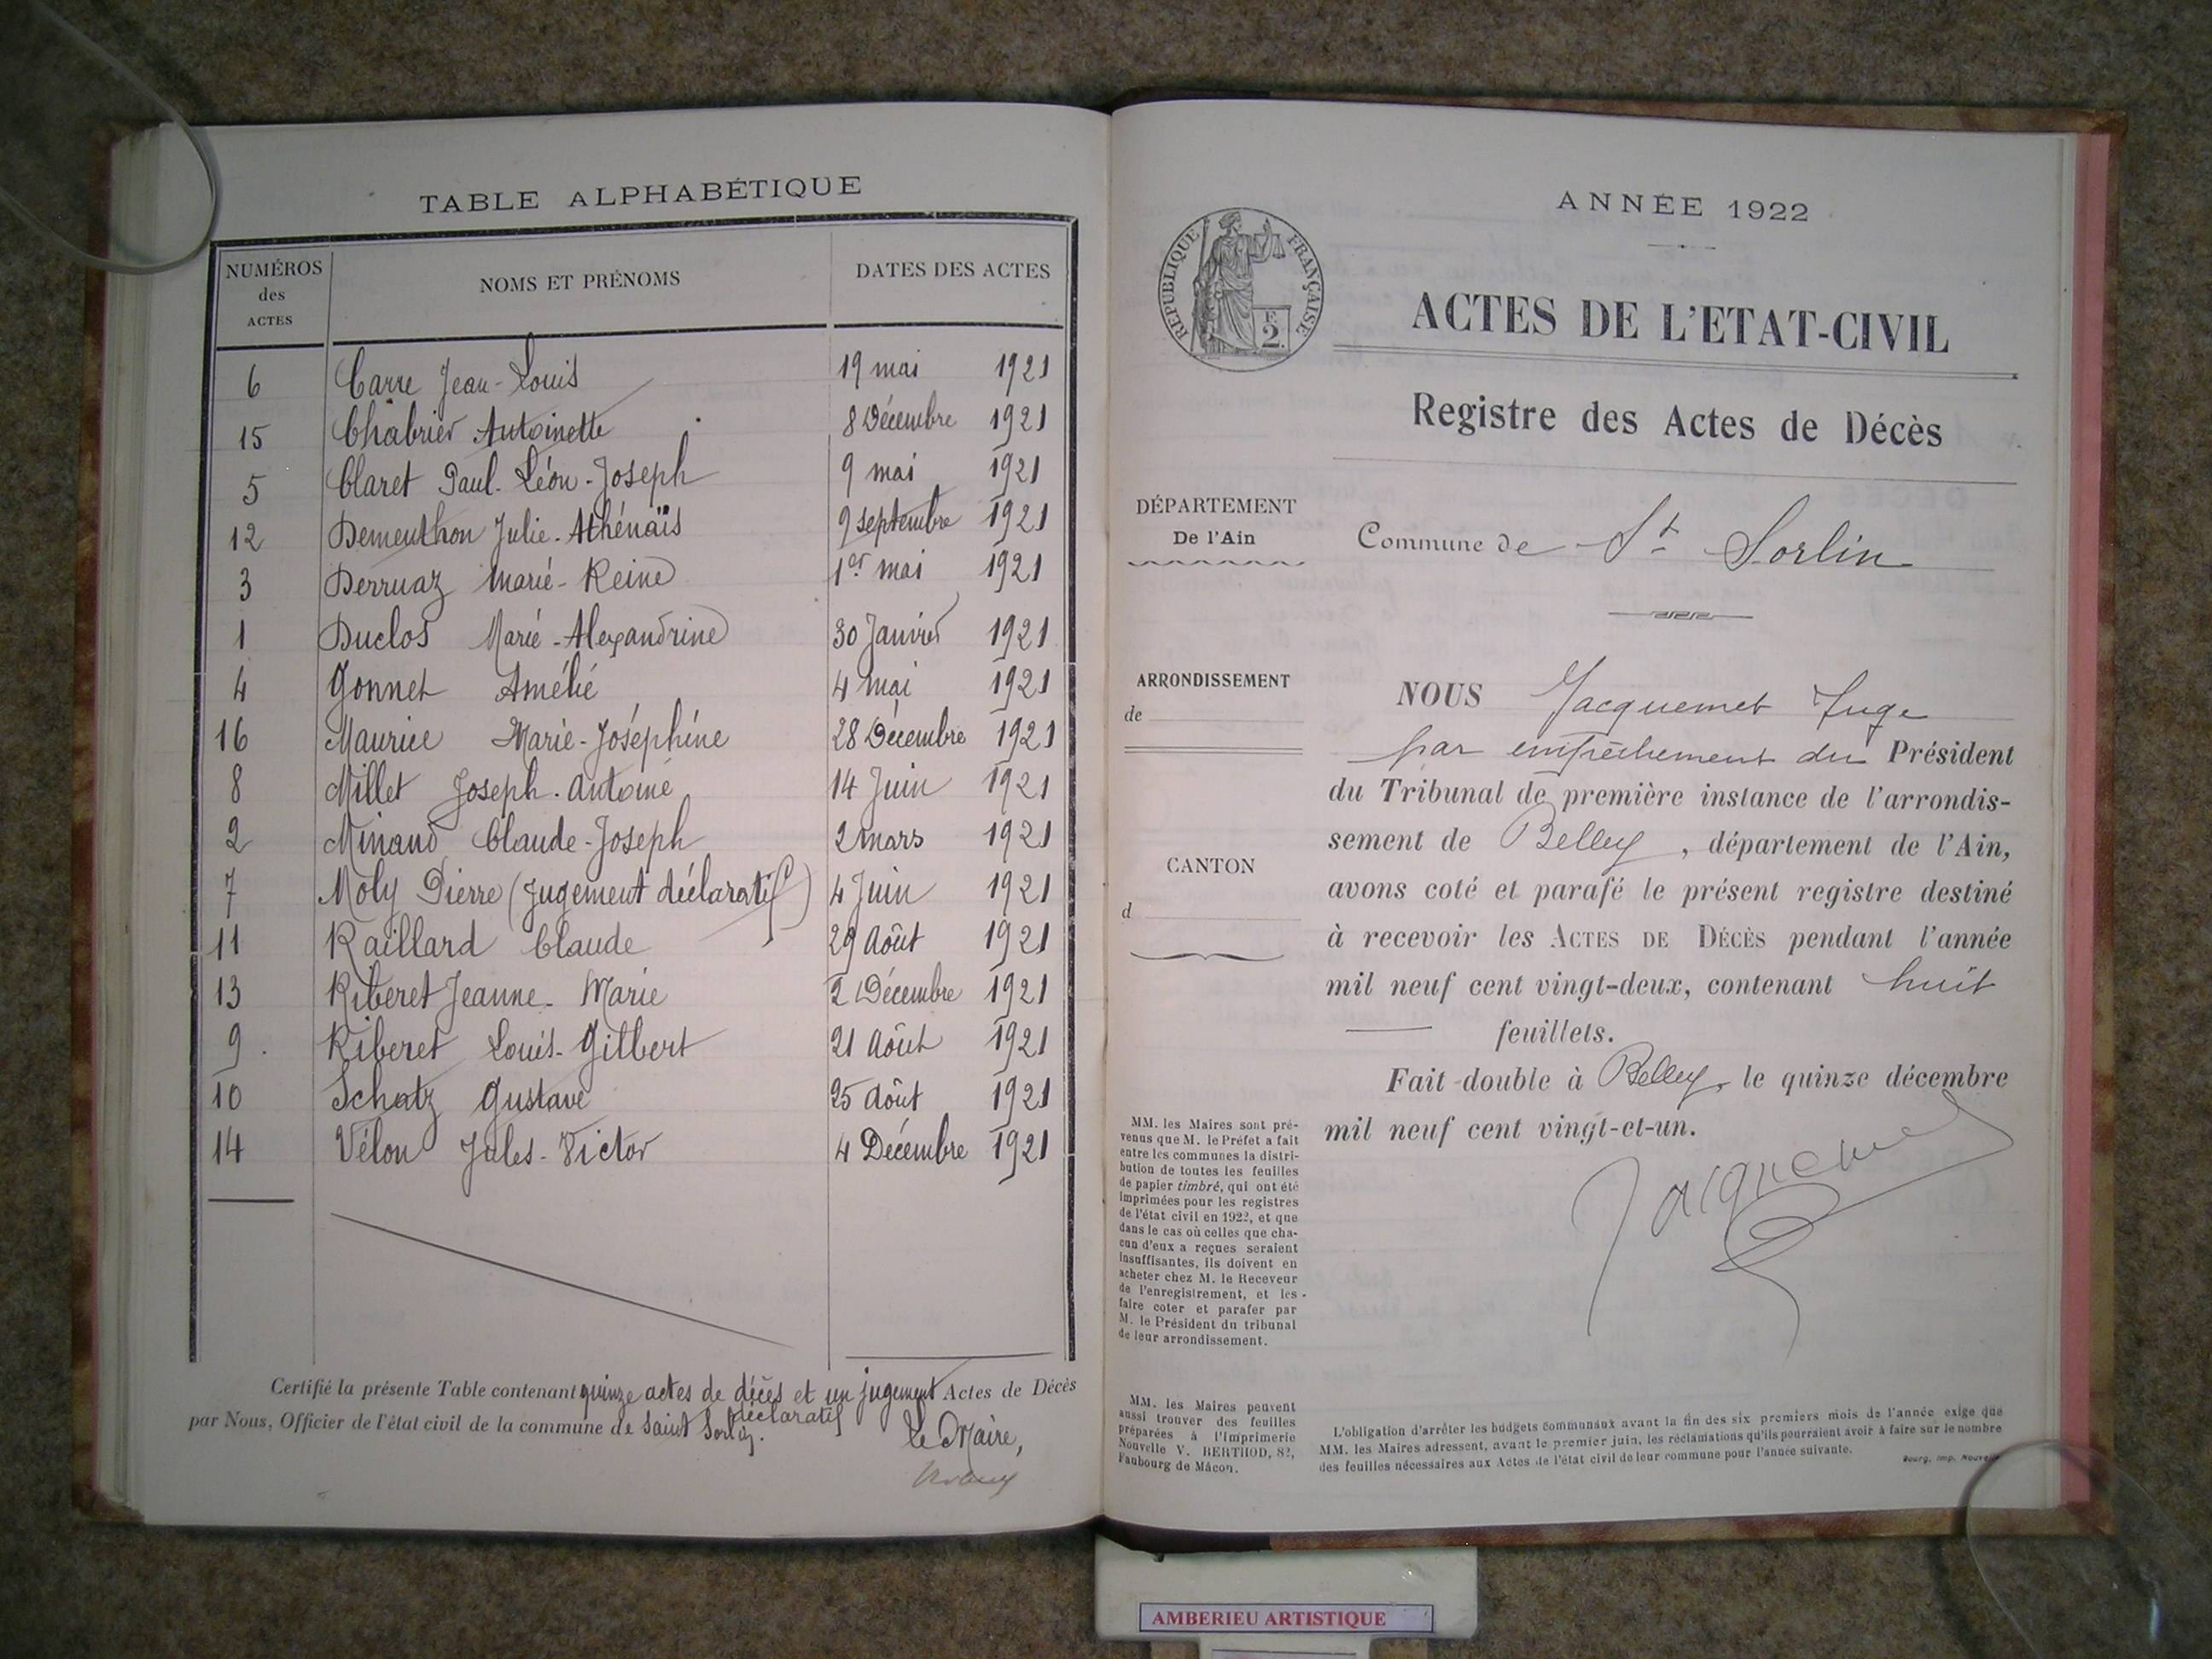 TABLE ALPHABÉTIQUE
NUMÉROS des ACTES NOMS ET PRÉNOMS DATES DES ACTES
6 Carre Jean-Louis 19 mai 1921
15 Chabrier Antoinette 8 Décembre 1921
5 Claret Paul-Léon-Joseph 9 mai 1921
12 Dementhon Julie-Athénaïs 9 septembre 1921
3 Derruaz Marie-Reine 1er mai 1921
1 Duclos Marie-Alexandrine 30 Janvier 1921
4 Gonnet Amélie 4 mai 1921
16 Maurice Marie-Joséphine 28 Décembre 1921
8 Millet Joseph-Antoine 14 Juin 1921
2 Minand Claude-Joseph 2 mars 1921
7 Moly Pierre (Jugement déclaratif) 4 Juin 1921
11 Raillard Claude 29 Août 1921
13 Riberet Jeanne-Marie 2 Décembre 1921
9 Riberet Louis-Gilbert 21 Août 1921
10 Schatz Gustave 25 Août 1921
14 Vélon Jules-Victor 4 Décembre 1921
Certifié la présente Table contenant quinze actes de décès et un jugement déclaratif Actes de Décès
par Nous, Officier de l'état civil de la commune de Saint Sorlin.
Le Maire,
ANNÉE 1922
RÉPUBLIQUE FRANÇAISE
F. 2.
ACTES DE L'ETAT-CIVIL
Registre des Actes de Décès
DÉPARTEMENT
De l'Ain
Commune de St Sorlin
ARRONDISSEMENT
de
CANTON
d
NOUS Jacquemet Juge
par empêchement du Président
du Tribunal de première instance de l'arrondis-
sement de Belley, département de l'Ain,
avons coté et parafé le présent registre destiné
à recevoir les ACTES DE DÉCÈS pendant l'année
mil neuf cent vingt-deux, contenant huit
feuillets.
Fait double à Belley, le quinze décembre
mil neuf cent vingt-et-un.
Jacquemet
MM. les Maires sont pré-
venus que M. le Préfet a fait
entre les communes la distri-
bution de toutes les feuilles
de papier timbré, qui ont été
imprimées pour les registres
de l'état civil en 1922, et que
dans le cas où celles que cha-
cun d'eux a reçues seraient
insuffisantes, ils doivent en
acheter chez M. le Receveur
de l'enregistrement, et les
faire coter et parafer par
M. le Président du tribunal
de leur arrondissement.
MM. les Maires peuvent
aussi trouver des feuilles
préparées à l'Imprimerie
Nouvelle V. BERTHOD, 82,
Faubourg de Mâcon.
L'obligation d'arrêter les budgets communaux avant la fin des six premiers mois de l'année exige que
MM. les Maires adressent, avant le premier juin, les réclamations qu'ils pourraient avoir à faire sur le nombre
des feuilles nécessaires aux Actes de l'état civil de leur commune pour l'année suivante.
Bourg, Imp. Nouvelle
AMBERIEU ARTISTIQUE